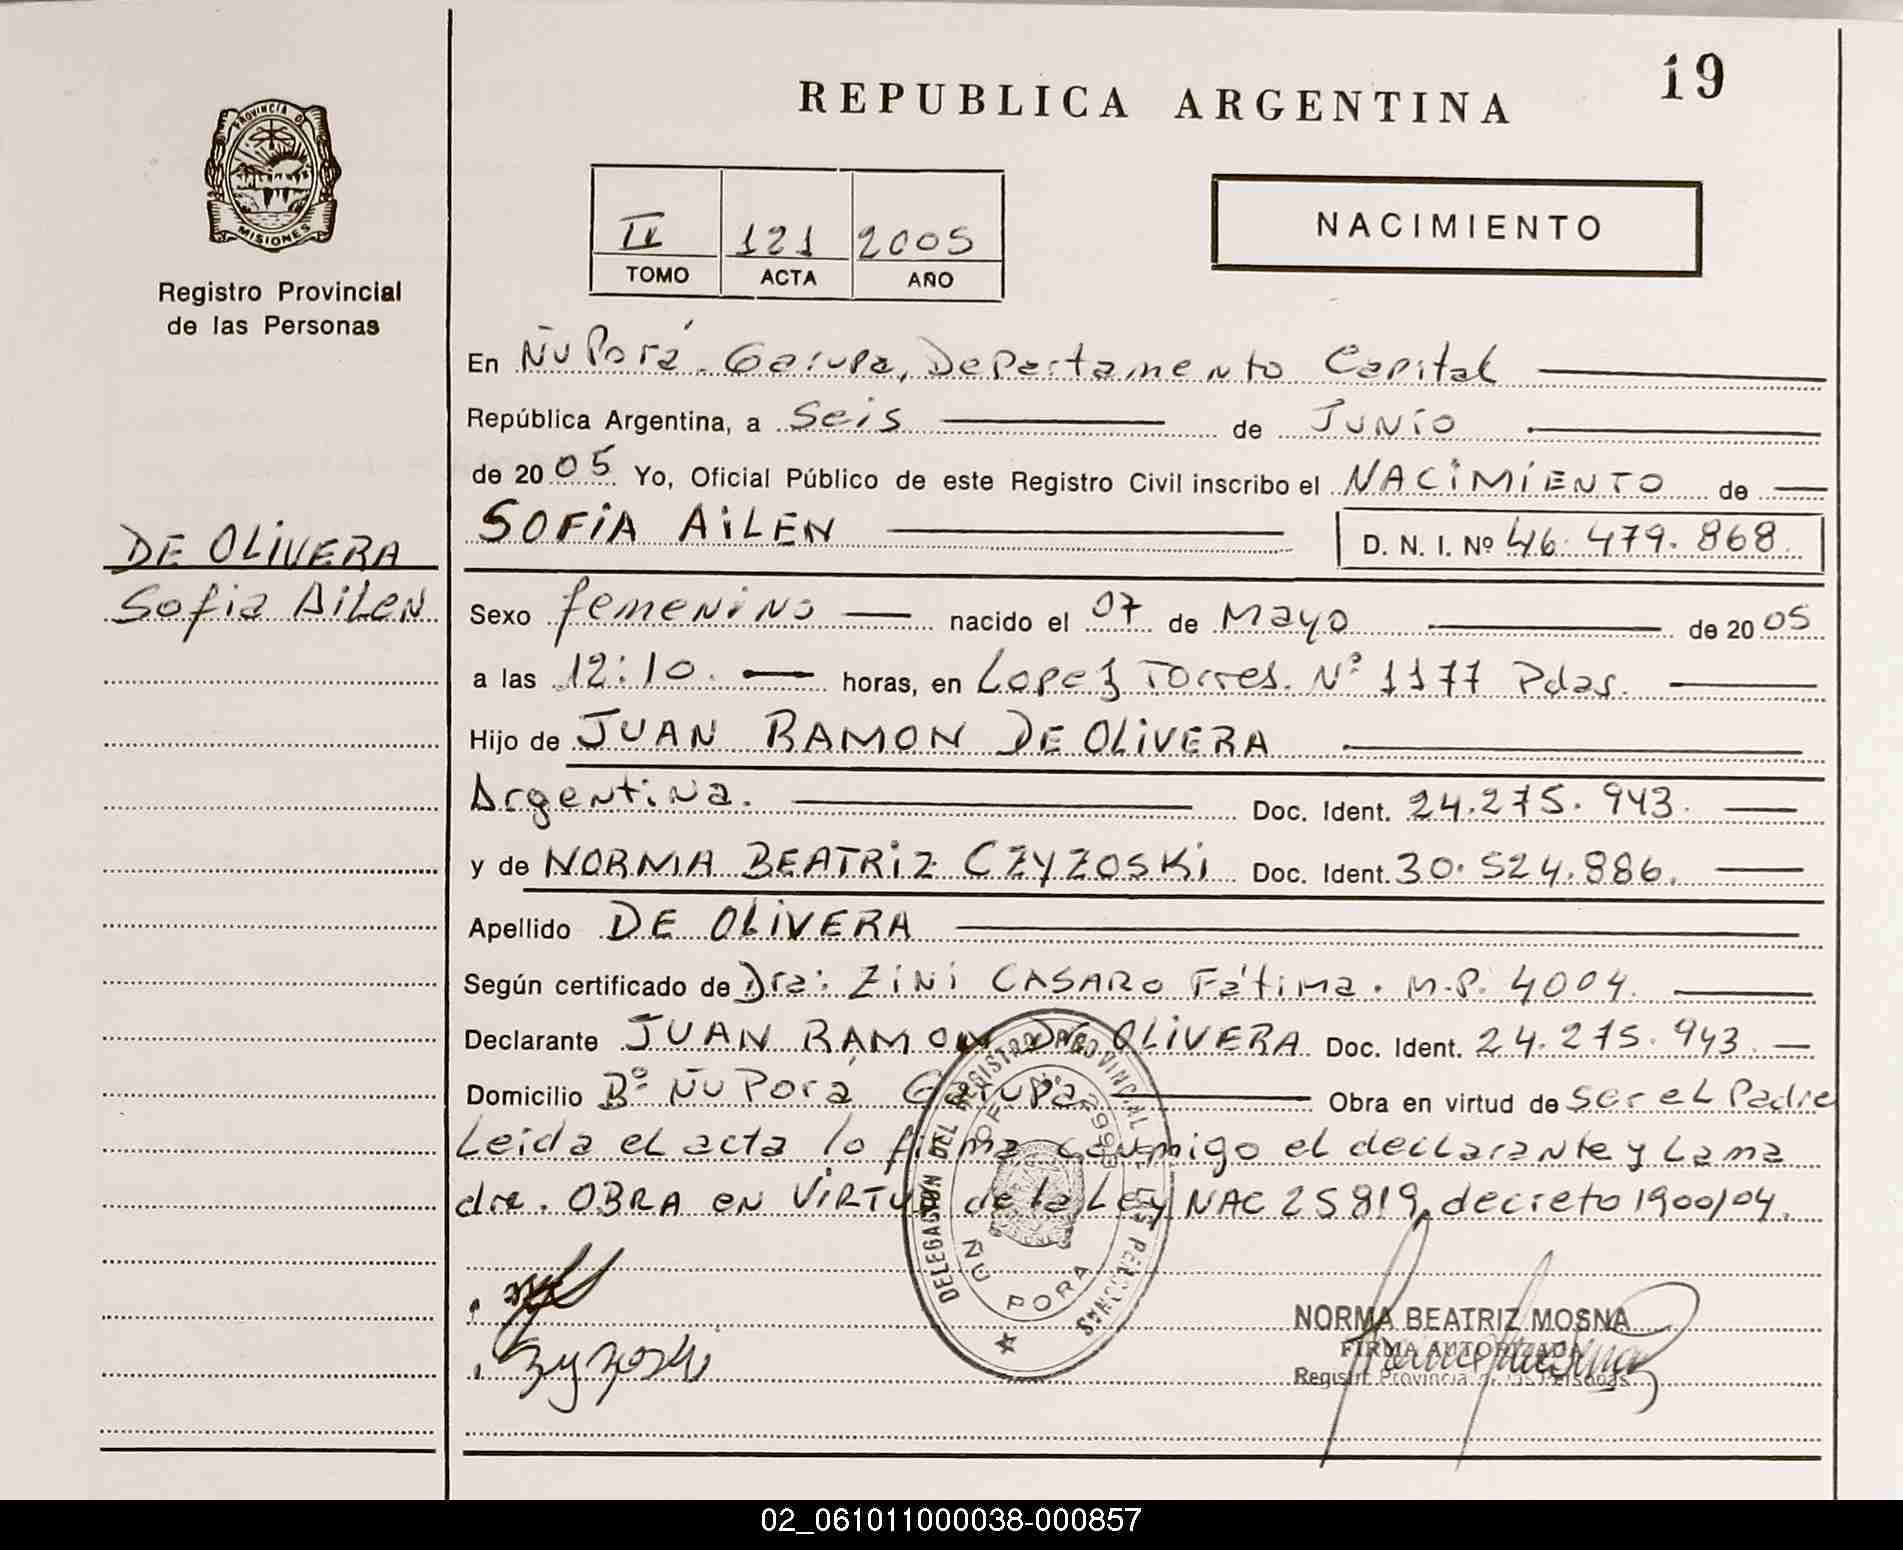 19
REPUBLICA ARGENTINA
PROVINCIA DE
MISIONES
Registro Provincial
de las Personas
NACIMIENTO
II 121 2005
TOMO ACTA AÑO
En Ñu Porá - Garupa, Departamento Capital
República Argentina, a Seis de Junio
de 2005 Yo, Oficial Público de este Registro Civil inscribo el NACIMIENTO de
DE OLIVERA
Sofia Ailen
SOFIA AILEN D. N. I. Nº 46.479.868
Sexo femenino nacido el 07 de Mayo de 2005
a las 12:10. horas, en Lopez Torres. Nº 1177 Pdas.
Hijo de JUAN RAMON DE OLIVERA
Argentina. Doc. Ident. 24.275.943.
y de NORMA BEATRIZ CZYZOSKI Doc. Ident. 30.524.886.
Apellido DE OLIVERA
Según certificado de Dra: ZINI CASARO Fátima. M.P. 4004.
Declarante JUAN RAMON DE OLIVERA Doc. Ident. 24.275.943.
Domicilio Bº Ñu Porá Garupa Obra en virtud de ser el Padre
Leida el acta lo firma conmigo el declarante y La ma
dre. OBRA en VIRTUD de la Ley NAC 25819, decreto 1900/04.
DELEGACION DEL REGISTRO PROVINCIAL DE LAS PERSONAS
ÑU PORA
Czyzoski
NORMA BEATRIZ MOSNA
FIRMA AUTORIZADA
Registro Provincial de las Personas
02_061011000038-000857